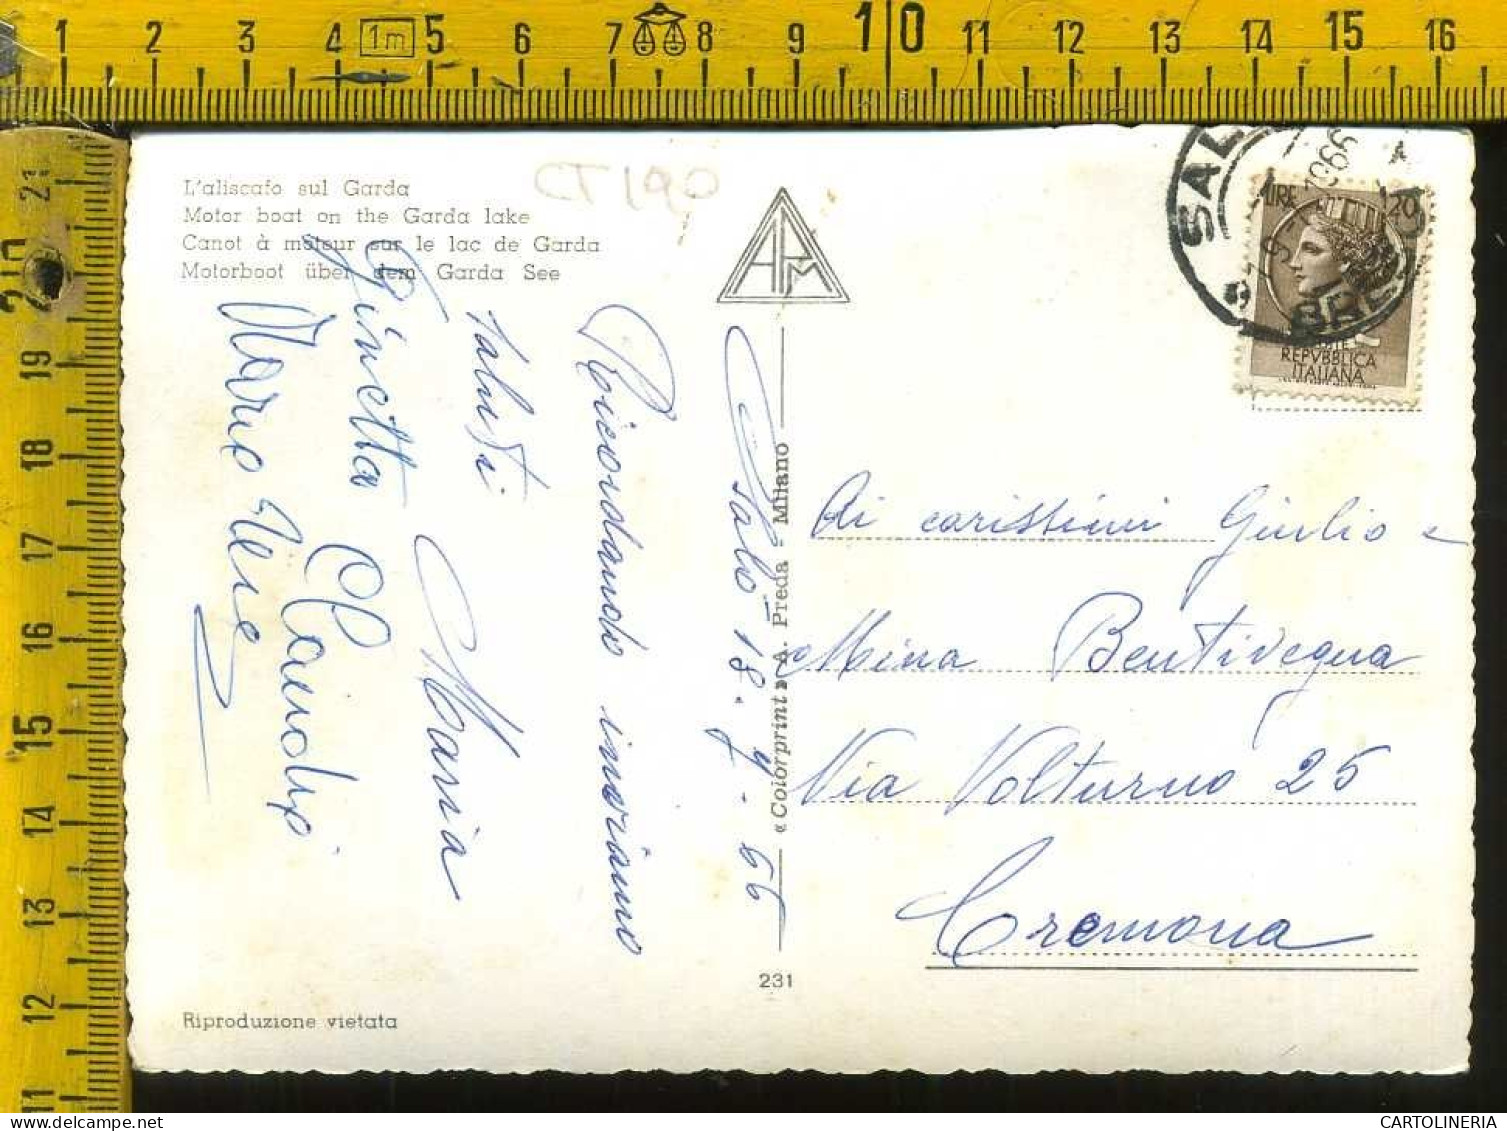 1 2 3 4 1m 5 6 7 8 9 10 11 12 13 14 15 16
21
20
19
18
17
16
15
14
13
12
11
L'aliscafo sul Garda
Motor boat on the Garda lake
Canot à moteur sur le lac de Garda
Motorboot über dem Garda See
CT 190
APM
« Colorprint » A. Preda - Milano
231
Riproduzione vietata
Salò 18. 7 - 66
Ricordando inviamo
saluti
Maria
Ginetta
Claudio
SAL
1966
BRE
LIRE 20
POSTE
REPVBBLICA
ITALIANA
Ai carissimi Giulio e
Mina Bentivegna
Via Volturno 25
Cremona
CARTOLINERIA